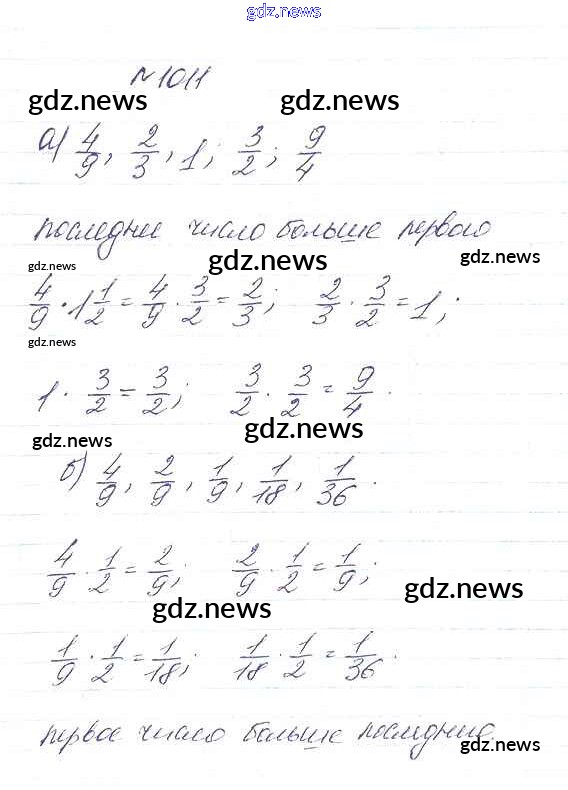 gdz.news
№1011
gdz.news gdz.news
а) 4/9, 2/3, 1; 3/2; 9/4
gdz.news
последнее число больше первого
gdz.news gdz.news gdz.news
4/9 · 1 1/2 = 4/9 · 3/2 = 2/3; 2/3 · 3/2 = 1;
gdz.news
1 · 3/2 = 3/2; 3/2 · 3/2 = 9/4.
gdz.news gdz.news
б) 4/9, 2/9, 1/9, 1/18, 1/36.
4/9 · 1/2 = 2/9; 2/9 · 1/2 = 1/9;
gdz.news gdz.news
1/9 · 1/2 = 1/18; 1/18 · 1/2 = 1/36.
первое число больше последние.
gdz.news